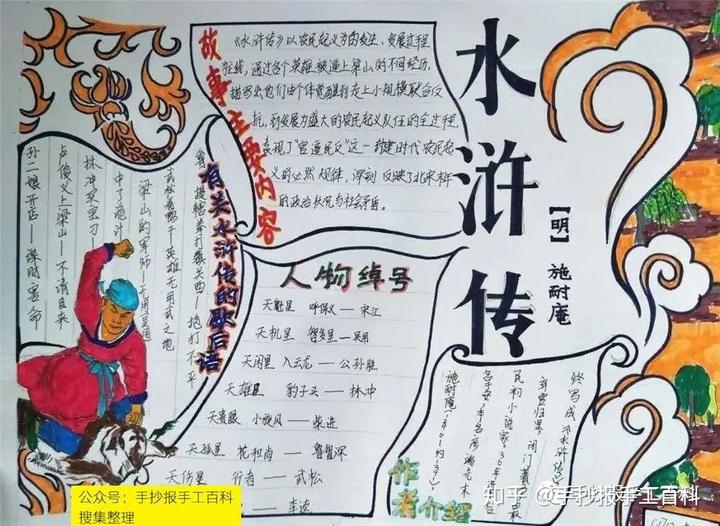 水浒传
【明】施耐庵
故事主要内容
《水浒传》以农民起义为的发生、发展过程
主线，通过各个英雄被逼上梁山的不同经历，
描写出他们由个体觉醒到走上小规模联合反
抗，到发展为盛大的农民起义队伍的全过程，
表现了“官逼民反”这一封建时代农民起
义的必然规律，深刻反映了北宋末年
的政治状况与社会矛盾。
有关水浒传的歇后语
鲁提辖拳打镇关西——抱打不平
英雄无用武之地
梁山的军师——
中了诡计
林冲买宝刀——
卢俊义上梁山——不请自来
孙二娘开店——谋财害命
人物绰号
天魁星 呼保义——宋江
天机星 智多星——吴用
天闲星 入云龙——公孙胜
天雄星 豹子头——林冲
天贵星 小旋风——柴进
天孤星 花和尚——鲁智深
天伤星 行者——武松
作者介绍
施耐庵
小说家
弃官归里，闭门著
终写成《水浒传》
知乎 @手抄报手工百科
公众号：手抄报手工百科
搜集整理